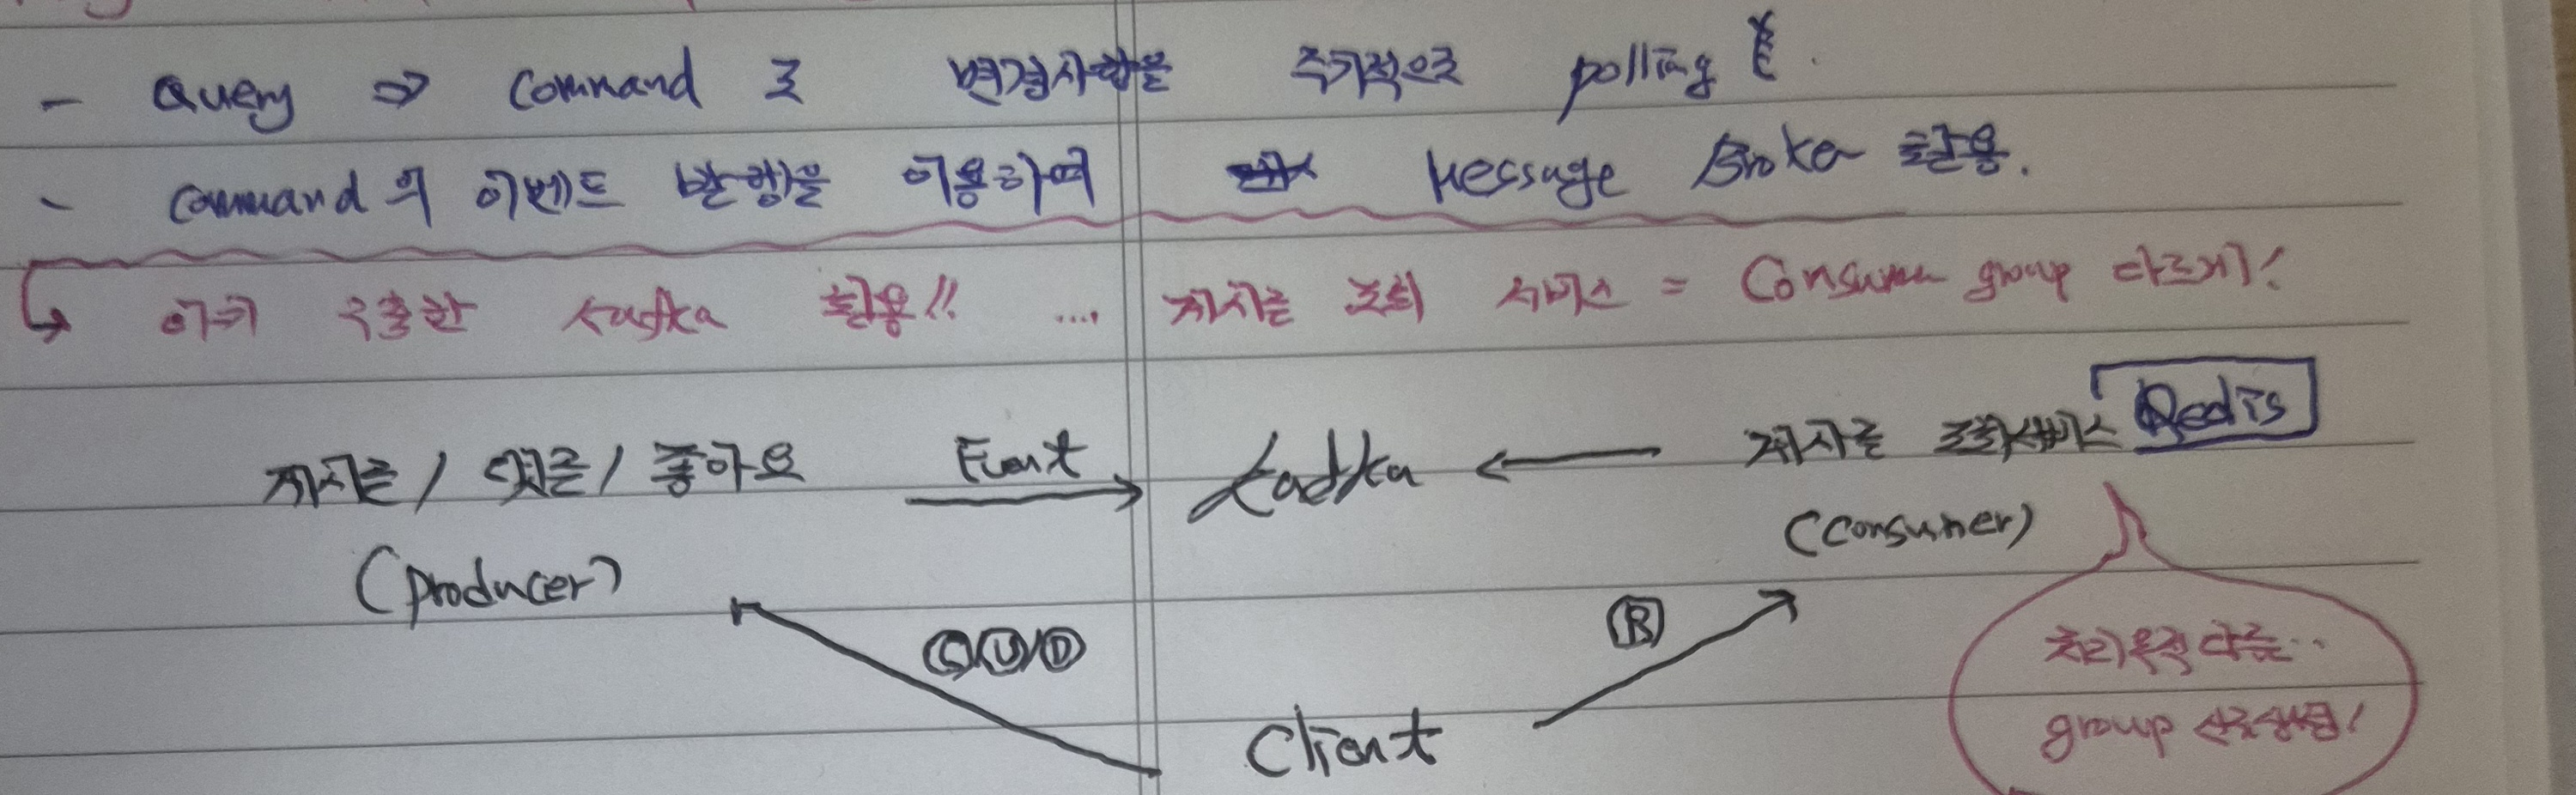 - Query ⇒ Command 로 변경사항을 주기적으로 polling
- Command의 이벤트 발행을 이용하여 Message Broker 활용.
↳ 이미 구축한 Kafka 활용!! ... 게시글 조회 서비스 = Consumer group 다르게!
게시글 / 댓글 / 좋아요 Event → Kafka ← 게시글 조회서비스 Redis
(Producer) (Consumer)
Ⓒ/Ⓤ/Ⓓ Ⓡ
Client
처리목적 다름..
group 신규생성!